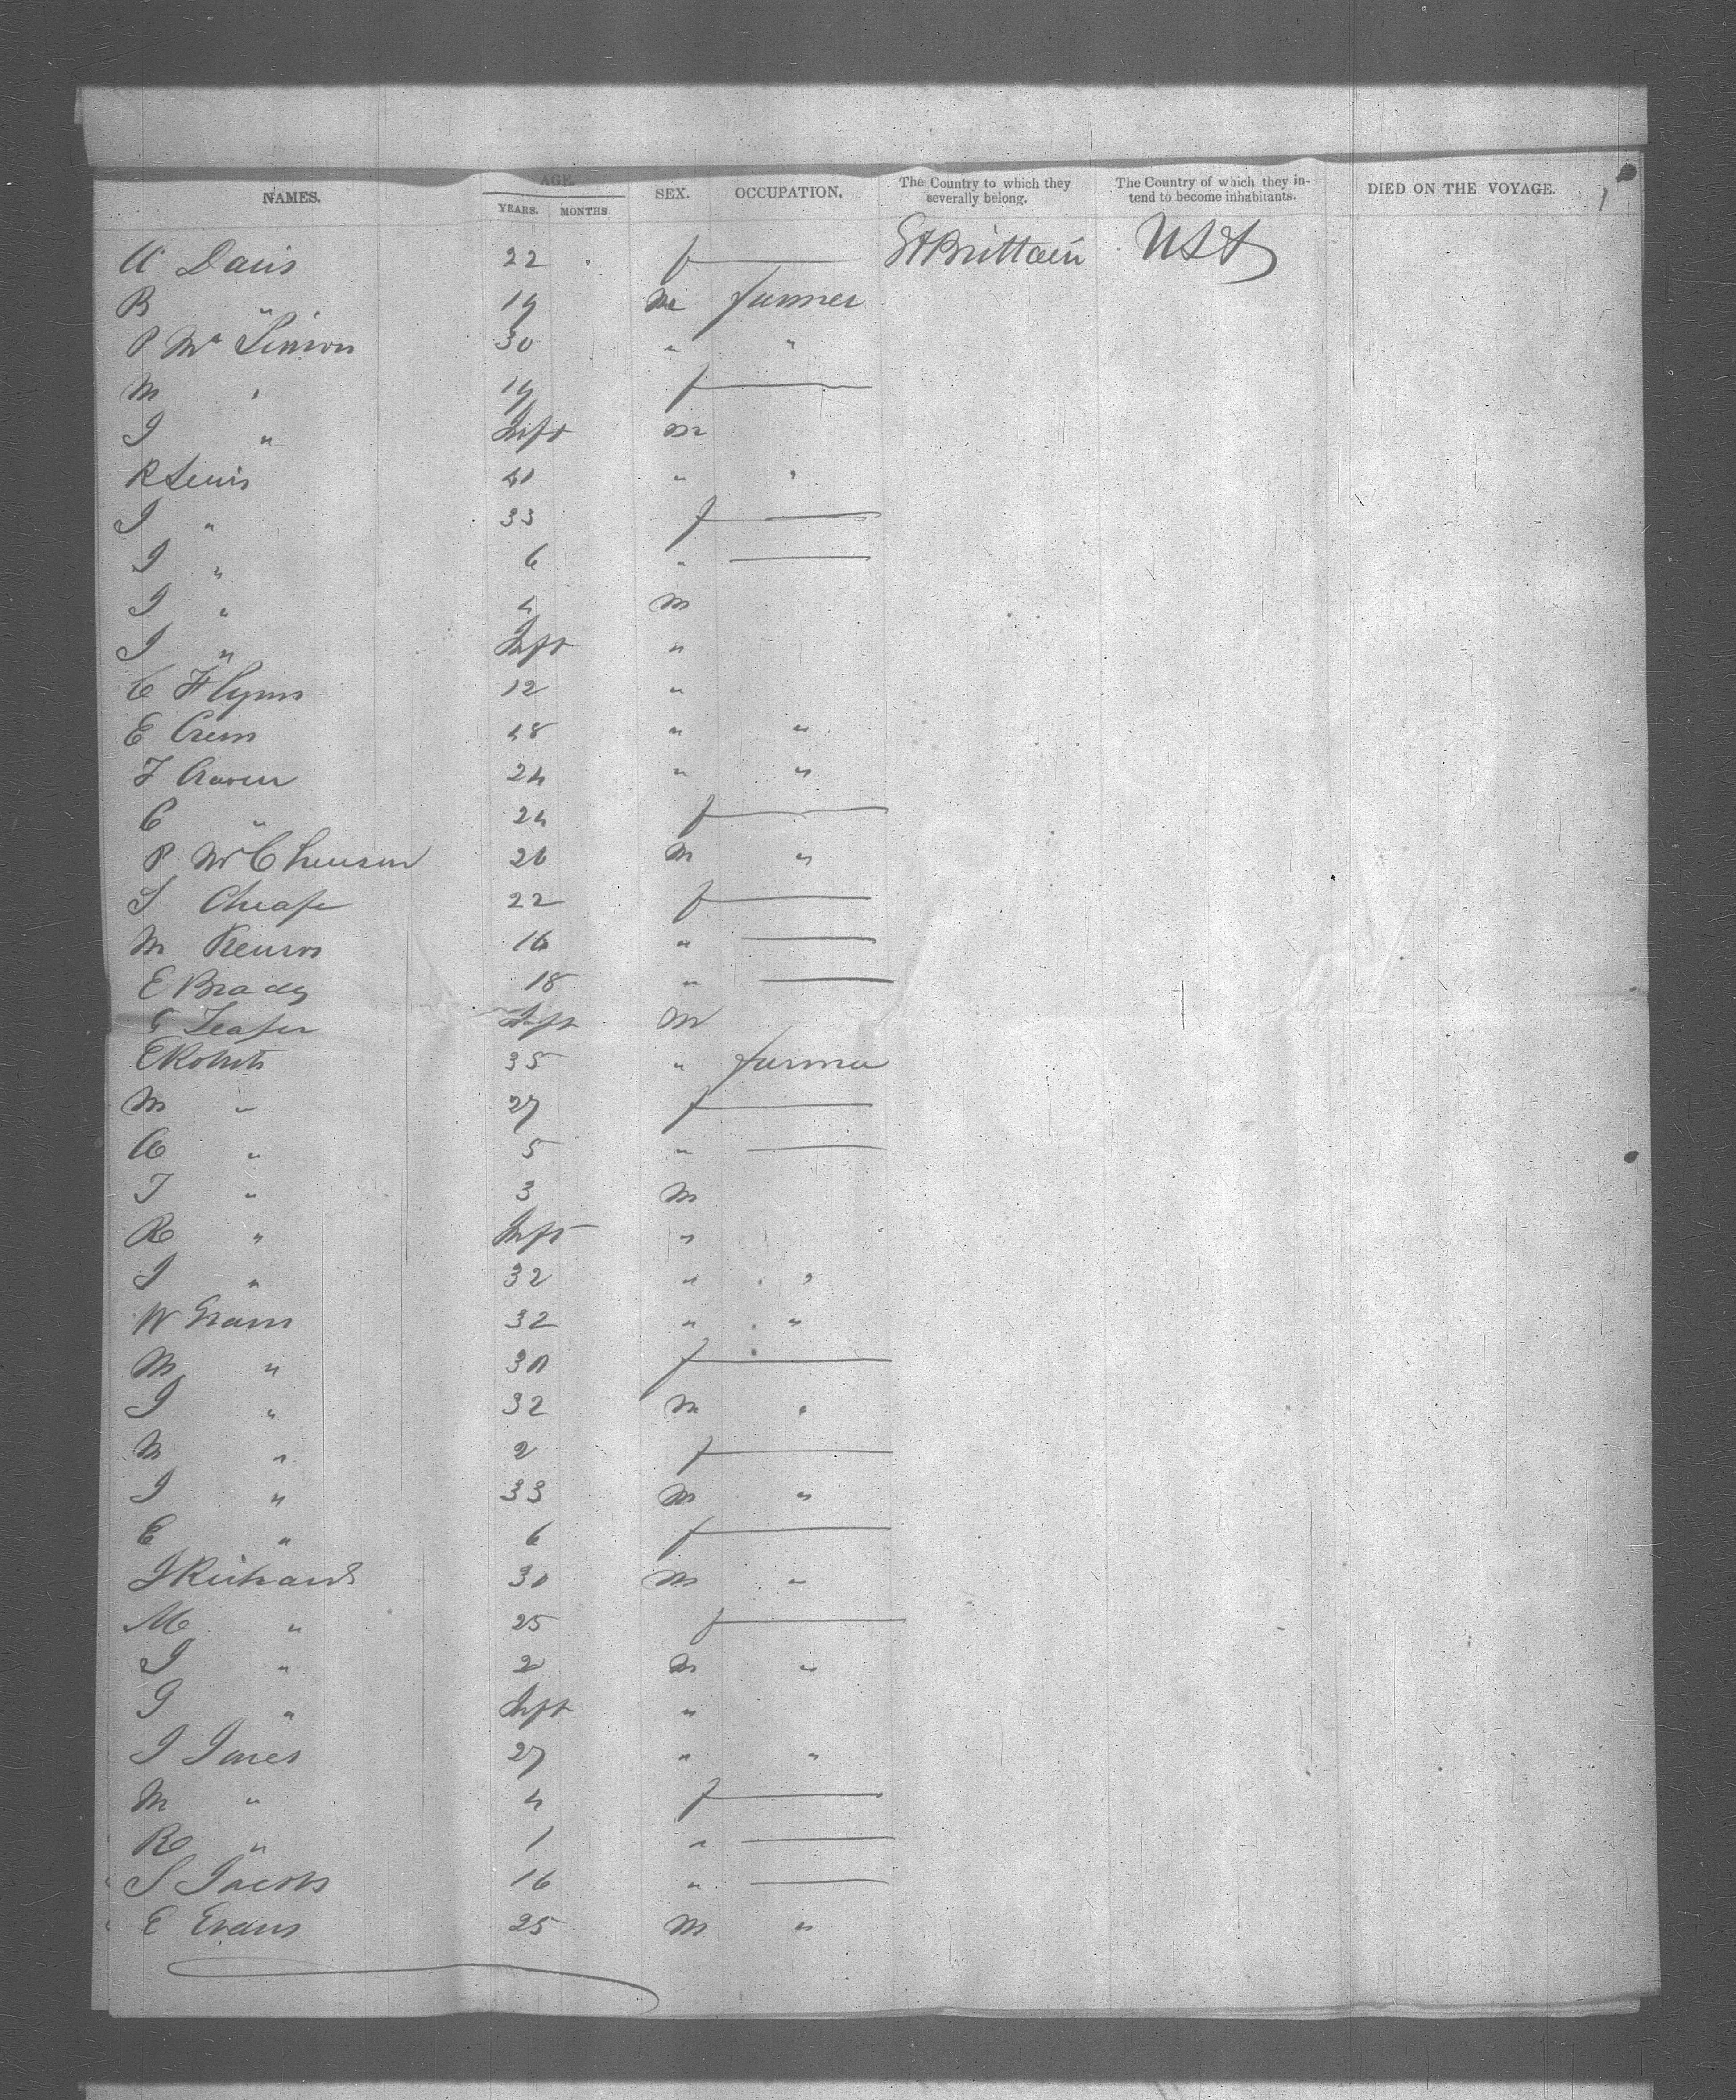 NAMES. AGE. SEX. OCCUPATION. The Country to which they severally belong. The Country of which they intend to become inhabitants. DIED ON THE VOYAGE.
YEARS. MONTHS
Davis 22 f — Gt Brittain USA
B " 19 m farmer
P Mc 30 " "
M " 19 f —
J " Inft m
R Lewis 41 " "
J " 33 f —
J " 6 " —
J " 4 m
J " Inft "
C Flynn 12 "
E 48 " "
T Craven 24 " "
C " 24 f —
P 26 m "
S 22 f —
M 16 " —
E Brady 18 " —
Inft m
E Roberts 35 " farmer
M " 27 f —
" 5 " —
T " 3 m
R " Inft "
J " 32 " "
W 32 " "
M " 30 f —
J " 32 m "
M " 2 f —
J " 33 m "
E " 6 f —
J Richards 30 m "
M " 25 f —
J " 2 m "
" Inft "
J Jones 27 " "
M " 4 f —
R " 1 " —
S Jacobs 16 " —
E Evans 25 m "